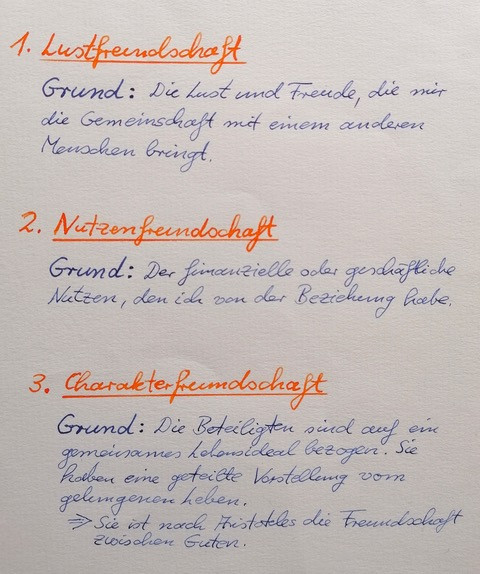 1. Lustfreundschaft
Grund: Die Lust und Freude, die mir
die Gemeinschaft mit einem anderen
Menschen bringt.
2. Nutzenfreundschaft
Grund: Der finanzielle oder geschäftliche
Nutzen, den ich von der Beziehung habe.
3. Charakterfreundschaft
Grund: Die Beteiligten sind auf ein
gemeinsames Lebensideal bezogen. Sie
haben eine geteilte Vorstellung vom
gelungenen Leben.
⇒ Sie ist nach Aristoteles die Freundschaft
zwischen Guten.